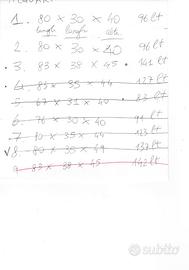 1. 80 x 30 x 40 96 lt
2. 80 x 30 x 40 96 lt
3. 83 x 38 x 45 141 lt
4. 83 x 35 x 44 127 lt
5. 67 x 31 x 40 83 lt
6. 76 x 30 x 40 91 lt
7. 80 x 35 x 44 123 lt
√8. 80 x 35 x 49 137 lt
9. 83 x 38 x 45 142 lt
subito